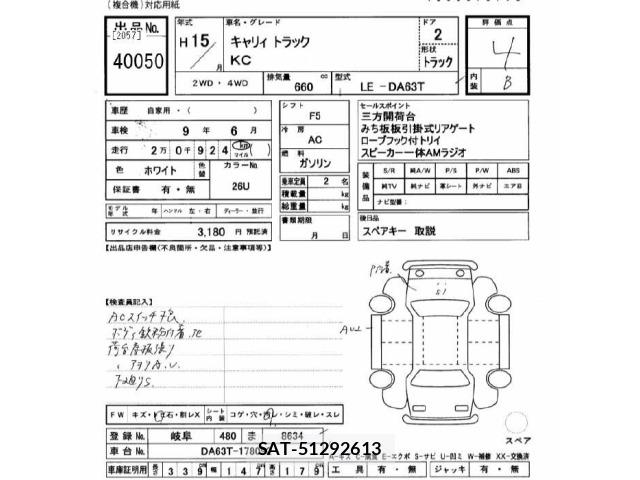 (複合機)対応用紙
出品No.
[2057]
40050
年式
H15/
月
車名・グレード
キャリィ トラック
KC
ドア
2
形状
トラック
評価点
4
内装
B
2WD・4WD
排気量
660 cc
型式
LE-DA63T
車歴 自家用・( )
車検 9年 6月
走行 2万0千924 (km マイル)
色 ホワイト
色替
カラーNo.
26U
保証書 有・無
モデル年式 年 ハンドル 左・右 ディーラー・並行
リサイクル料金 3,180 円 預託済
シフト
F5
冷房
AC
燃料
ガソリン
乗車定員 2 名
積載量 kg
総重量 kg
書類期限
月 日
セールスポイント
三方開荷台
みち板板引掛式リアゲート
ロープフック付トリイ
スピーカー一体AMラジオ
装備品
S/R 純A/W P/S P/W ABS
純TV 純ナビ 革シート 外ナビ エアB
ナビ型番:
後日品
スペアキー 取説
【出品店申告欄(不良箇所・欠品・注意事項等)】
【検査員記入】
ACスイッチ
AUL
S1
FW キズ・ 石・削レX
シート内装
コゲ・穴・ ・シミ・破レ・スレ
登録No. 岐阜 480 ま 8634
車台No. DA63T-1780
SAT-51292613
A-キズ E-エクボ S-サビ U-凹ミ W-補修 XX-交換済
スペア
車庫証明用 長さ 339 幅 147 高さ 179 工具 有・無 ジャッキ 有・無